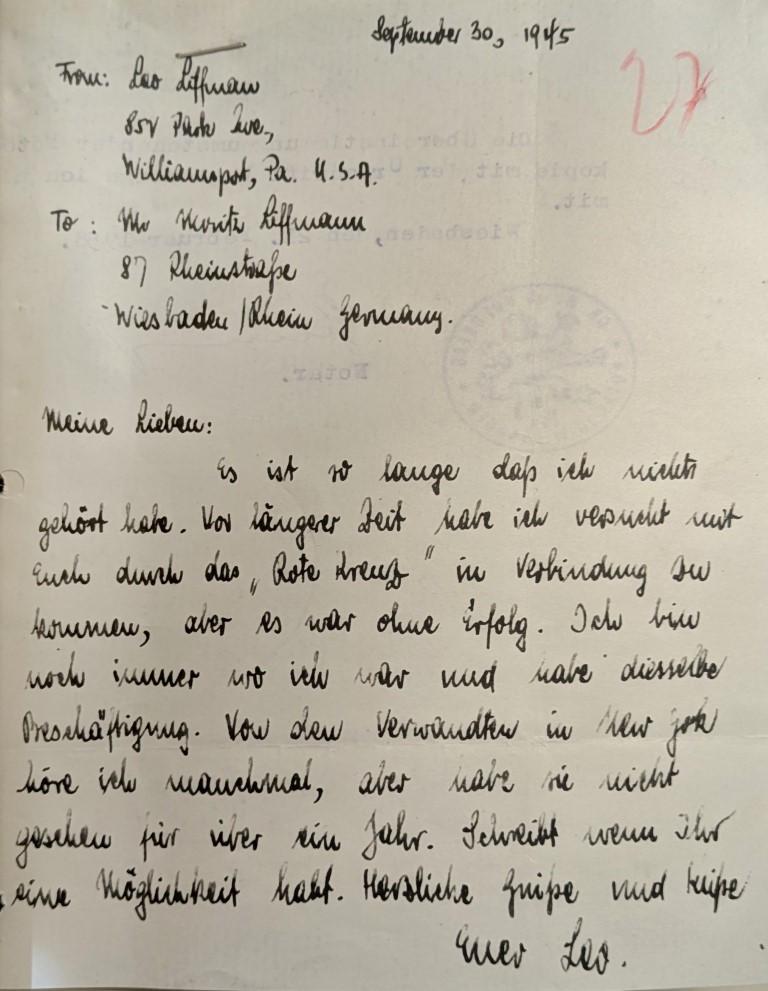 September 30, 1945
27
From: Leo Liffmann
858 Park Ave.,
Williamsport, Pa. U.S.A.
To: Mr Moritz Liffmann
87 Rheinstraße
Wiesbaden/Rhein Germany.
Meine Lieben:
Es ist so lange daß ich nichts
gehört habe. Vor längerer Zeit habe ich versucht mit
Euch durch das „Rote Kreuz" in Verbindung zu
kommen, aber es war ohne Erfolg. Ich bin
noch immer wo ich war und habe diesselbe
Beschäftigung. Von den Verwandten in New York
höre ich manchmal, aber habe sie nicht
gesehen für über ein Jahr. Schreibt wenn Ihr
eine Möglichkeit habt. Herzliche Grüße und Küße
Euer Leo.
Notar.